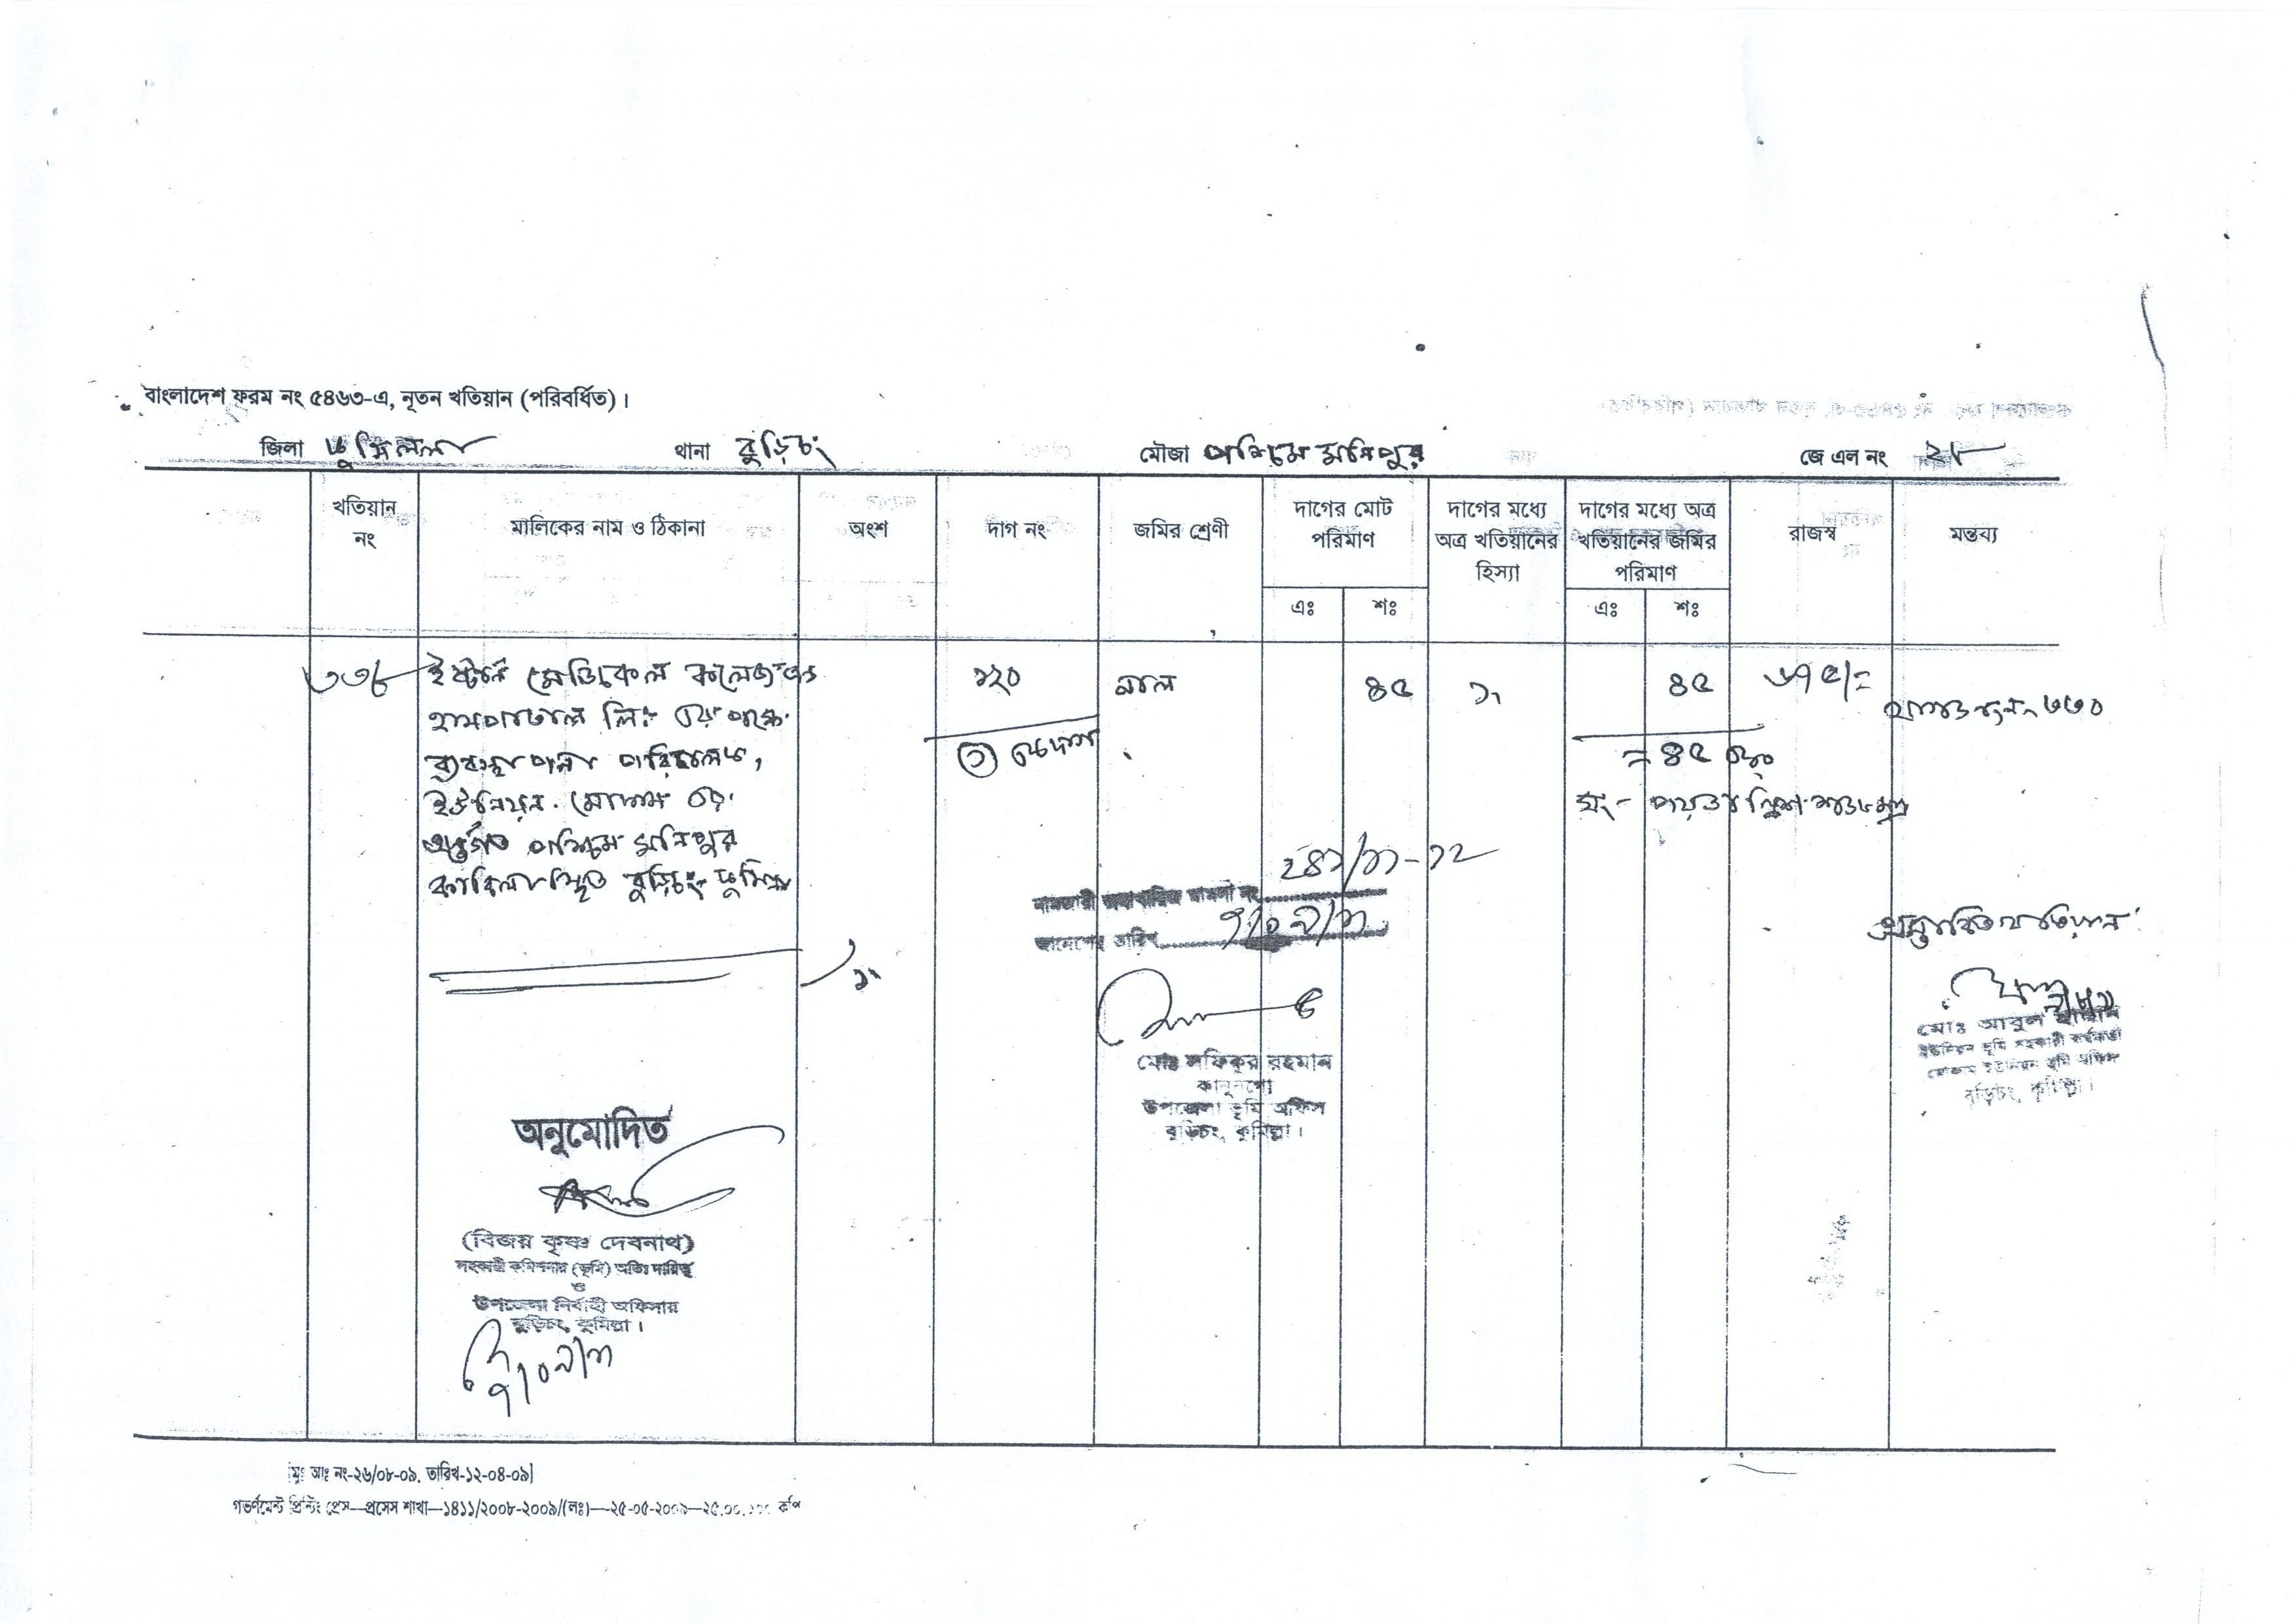 বাংলাদেশ ফরম নং ৫৪৬৩-এ, নূতন খতিয়ান (পরিবর্ধিত)।
জিলা কুমিল্লা থানা বুড়িচং মৌজা পশ্চিম মনিপুর জে এল নং ২৮
খতিয়ান নং
মালিকের নাম ও ঠিকানা
অংশ
দাগ নং
জমির শ্রেণী
দাগের মোট পরিমাণ
এঃ শঃ
দাগের মধ্যে অত্র খতিয়ানের হিস্যা
দাগের মধ্যে অত্র খতিয়ানের জমির পরিমাণ
এঃ শঃ
রাজস্ব
মন্তব্য
৩৩৮ ইষ্টার্ন মেডিকেল কলেজ এন্ড ১২০ নাল ৪৫ ১৲ ৪৫
হাসপাতাল লিঃ এর পক্ষে
ব্যবস্থাপনা পরিচালক,
ইউনিয়ন মোকাম এর
অন্তর্গত পশ্চিম মনিপুর
কাবিলা স্থিত বুড়িচং কুমিল্লা
১৲
= ৪৫
২৪১/১১-১২
নামজারী জমাখারিজ মামলা নং
আদেশের তারিখ ৭/০৯/১১
মোঃ সফিকুর রহমান
কানুনগো
উপজেলা ভূমি অফিস
বুড়িচং, কুমিল্লা।
প্রস্তাবিত খতিয়ান
মোঃ আবুল হাসান
ইউনিয়ন ভূমি সহকারী কর্মকর্তা
মোকাম ইউনিয়ন ভূমি অফিস
বুড়িচং, কুমিল্লা।
অনুমোদিত
(বিজয় কৃষ্ণ দেবনাথ)
সহকারী কমিশনার (ভূমি) অতিঃ দায়িত্ব
ও
উপজেলা নির্বাহী অফিসার
বুড়িচং, কুমিল্লা।
৭/০৯/১১
[মুঃ আঃ নং-২৬/০৮-০৯, তারিখ-১২-০৪-০৯]
গভর্ণমেন্ট প্রিন্টিং প্রেস—প্রসেস শাখা—১৪১১/২০০৮-২০০৯/(লঃ)—২৫-০৫-২০০৯—২৫,০০,০০০ কপি